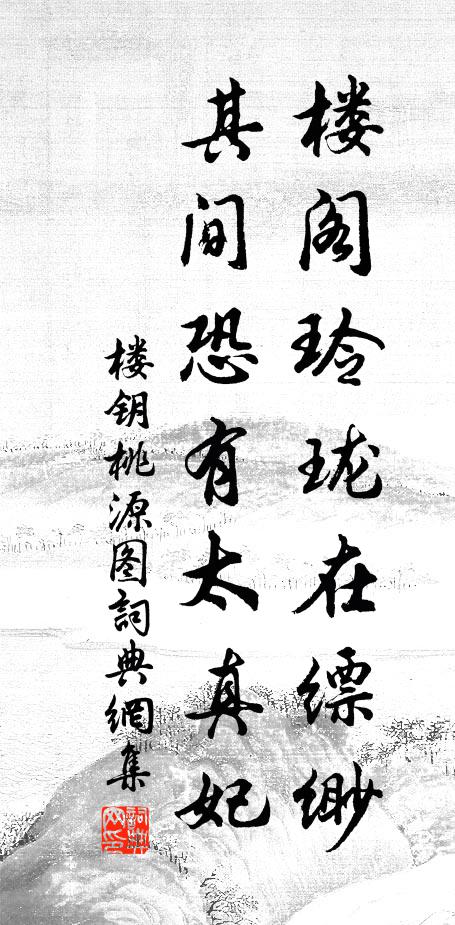 楼阁玲珑在缥缈
其间恐有太真妃
楼钥桃源图詞典網集